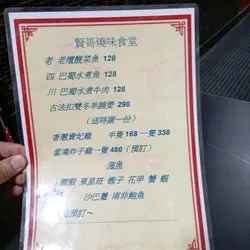 賢哥燒味食堂
老 老壇酸菜魚 128
四 巴蜀水煮魚 128
川 巴蜀水煮牛肉 128
古法扣雙冬羊腩煲 298
(送時蔬一份)
香蔥貴妃雞 半隻168一隻338
當鴻炸子雞一隻480(預訂)
海魚
龍蝦 東星斑 龍子 花甲 蟹 蝦
沙巴躉 南非鮑魚
預訂~